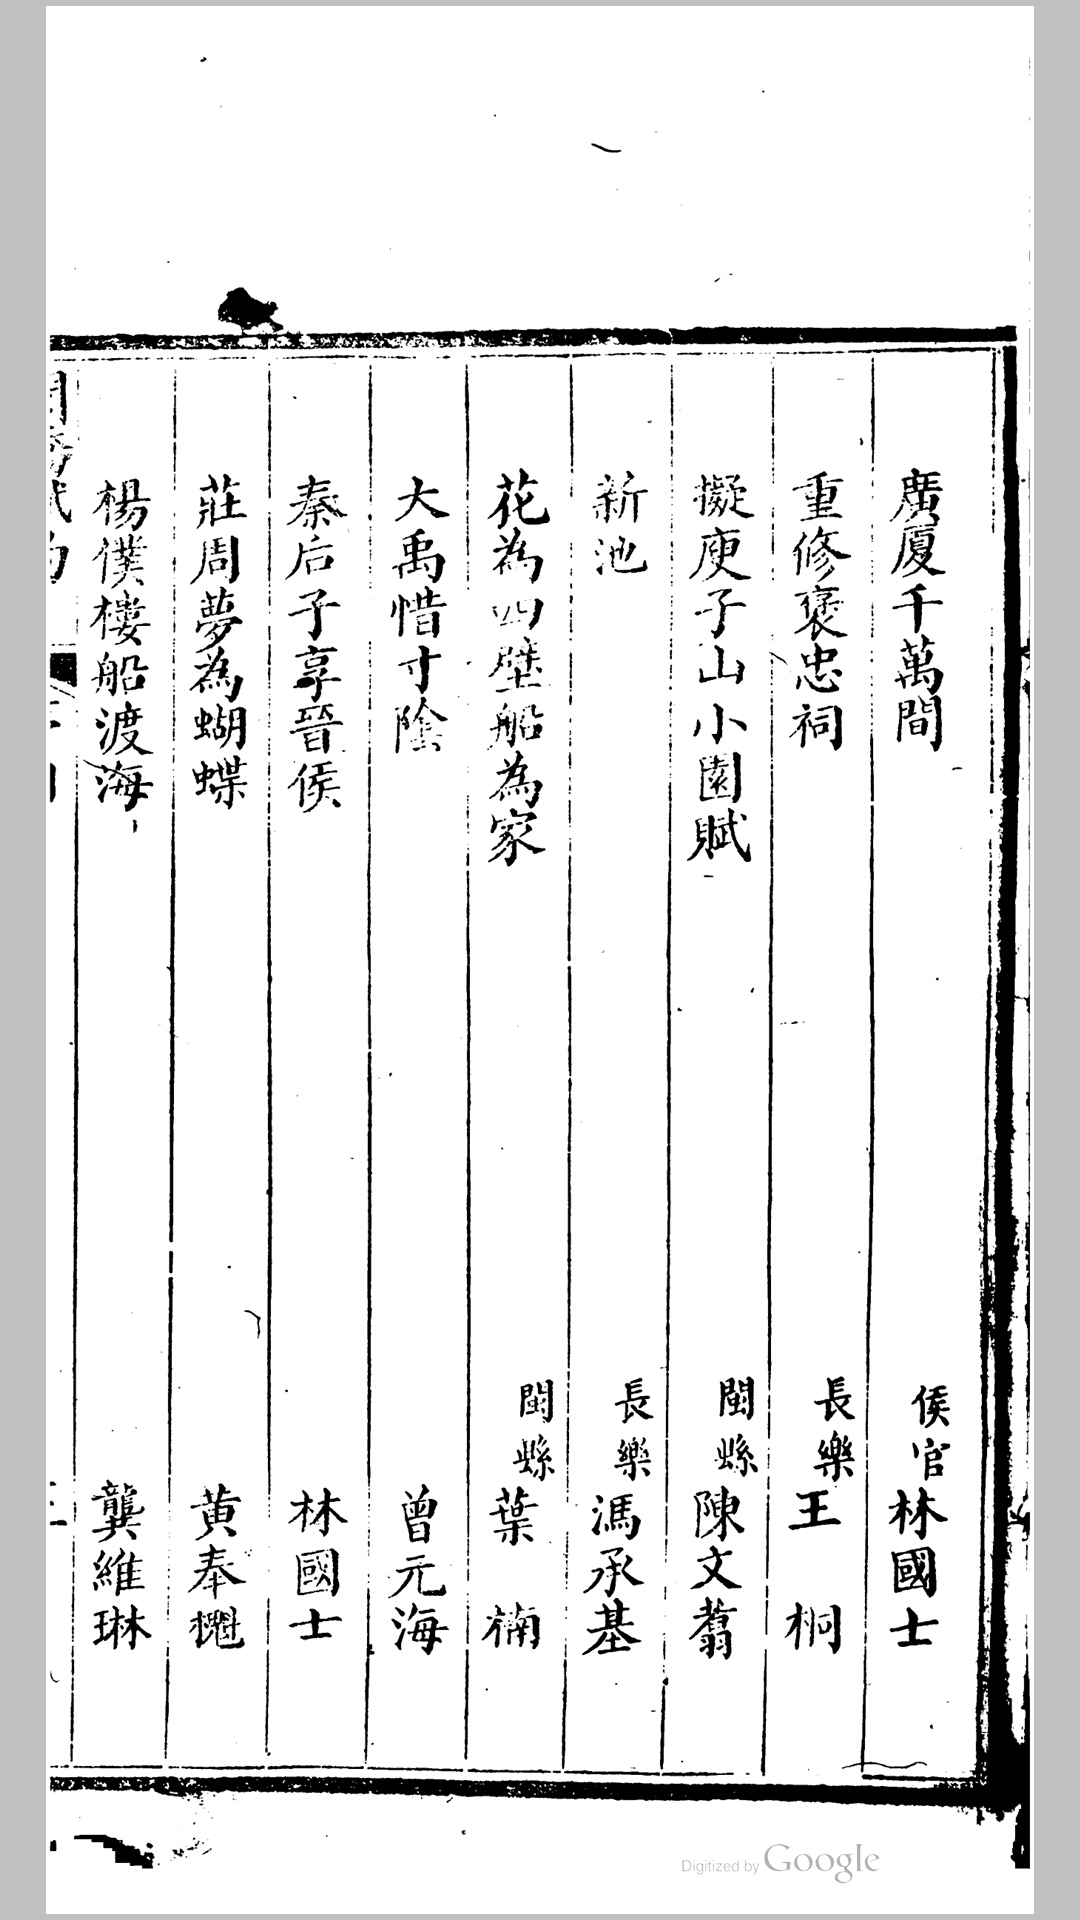 廣厦千萬間 侯官 林國士
重修褒忠祠 長樂 王桐
擬庾子山小園賦 閩縣 陳文翥
新池 長樂 馮承基
花為四壁船為家 閩縣 葉楠
大禹惜寸陰 曾元海
秦后子享晉侯 林國士
莊周夢為蝴蝶 黄奉
楊僕樓船渡海 龔維琳
Digitized by Google